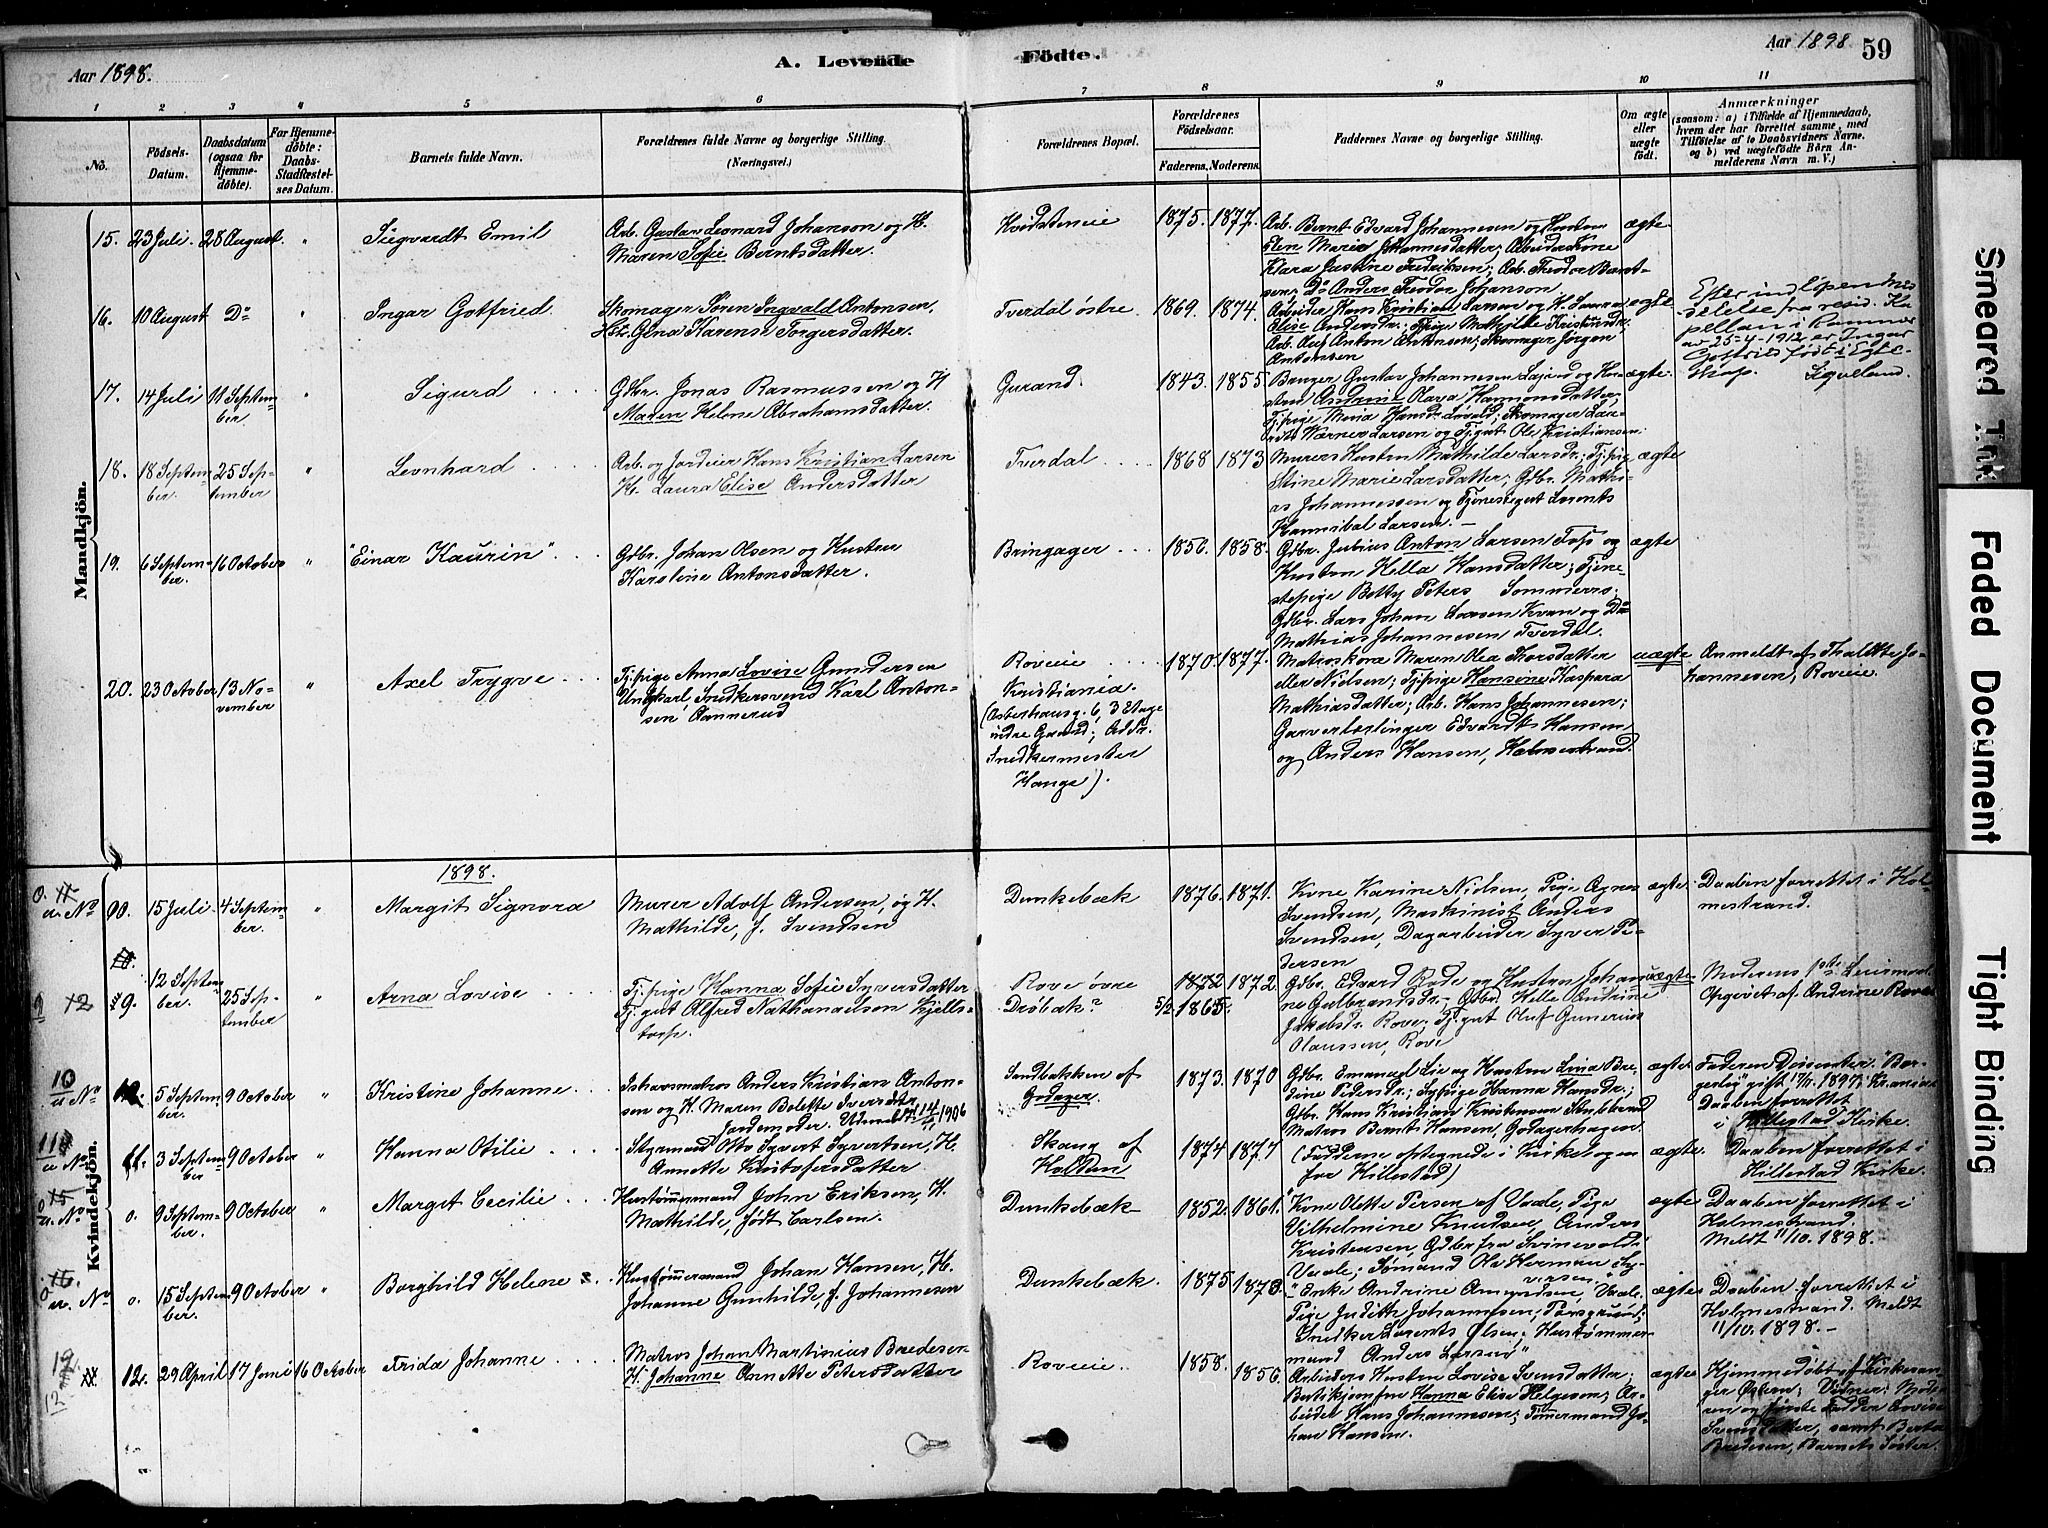 Aar 1898.
A. Levende Födte.
Aar 1898
59
1 2 3 4 5 6 7 8 9 10 11
Nô.
Födsels-
Datum.
Daabsdatum
(ogsaa for
Hjemme-
döbte).
For Hjemme-
döbte:
Daabs-
Stadfæstel-
ses Datum.
Barnets fulde Navn.
Forældrenes fulde Navne og borgerlige Stilling.
(Næringsvei.)
Forældrenes Bopæl.
Forældrenes
Födselsaar.
Faderens. Moderens.
Faddernes Navne og borgerlige Stilling.
Om ægte
eller
uægte
födt.
Anmærkninger
(saasom: a) i Tilfælde af Hjemmedaab,
hvem der har forrettet samme, med
Tilföielse af to Daabsvidners Navne.
og b) ved uægtefödte Börn An-
melderens Navn m. V.)
Mandkjön.
15. 23 Juli 28 August " Sigvardt Emil
Arb. Gustav Leonard Johanson og H.
Maren Sofie Berntsdatter.
Kvidsteneie
1875. 1877.
Arb. Bernt Edvard Johannesen og Hustru
Elen Marie Johannesdatter; Arbeiderkone
Klara Justine Fredriksen; Arb. Theodor Bernt-
sen; Do Anders Theodor Johanson.
ægte
16. 10 August Do " Ingar Gotfried
Skomager Sören Ingvald Antonsen,
H. Gina Karense Torgersdatter.
Tverdal östre.
1869. 1874.
Arbeider Hans Kristian Larsen og H. Laura
Elise Andersdr.; Tjpige Mathilde Kristiansdr.
Arb. Aug. Anton Antonsen; Skomager Jörgen
Antonsen
ægte
Efter indlöpen Med-
delelse fra resid. Ka-
pellan i Ramnæs
av 25-4-1912 er Ingar
Gotfried födt i Egte-
skap. Sigveland.
17. 14 Juli 11 Septem-
ber " Sigurd
Gdbr. Jonas Rasmussen og H
Maren Helene Abrahamsdatter.
Gurand.
1843. 1855.
Bruger Gustav Johannesen og Hu-
stru Olava Hansdatter;
Tjpige Mina Hansdr. Lövald; Skomager Lau-
rits Værner Larsen og Tjgut Ole Kristiansen.
ægte.
18. 18 Septem-
ber. 25 Sep-
tember " Leonhard
Arb. og Jordeier Hans Kristian Larsen
H. Laura Elise Andersdatter
Tverdal
1868 1873
Murers Hustru Mathilde Larsdr.; Tjpige
Stine Marie Larsdatter; Gdbr. Mathi-
as Johannessen og Tjenestegut Laurits
Hannibal Larsen. –
ægte
19. 6 Septem-
ber. 16 October " "Einar Kaurin"
Gdbr. Johan Olsen og Hustru
Karoline Antonsdatter.
Bringager
1856. 1858.
Gdbr. Julius Anton Larsen Fös og
Hustru Hella Hansdatter; Tjene-
stepige Betty Peters Sommerro;
Gdbr. Lars Johan Larsen Kvan og Do
Mathias Johannesen Tverdal.
ægte
20. 23 October 13 No-
vember " Axel Trygve
Tjpige Anna Lovise Gundersen
Ungkarl, Snedkersvend Karl Anton-
sen Aannerud
Roveie
Kristiania
(Osterhausg. 6, 3 Etage
indre Gaard; Adr.
Snedkermester
Hauge).
1870. 1877.
Matroskone Maren Olea Thorsdatter
eller Nielsen; Tjpige Hansine Kaspara
Mathiasdatter; Arb. Hans Johannesen;
Garverlærlinger Edvardt Hansen
og Anders Hansen, Holmestrand.
uægte
Anmeldt af Jo-
hannesen, Roveie.
Kvindekjön.
1898.
u. No 00. 15 Juli 4 Septem-
ber. " Margit Signora
Murer Adolf Andersen, og H.
Mathilde, f. Svendsen
Dunkebæk
1876. 1871.
Kone Karine Nielsen, Pige Agnes
Svendsen, Maskinist Anders
Svendsen, Dagarbeider Syver Pe-
dersen
ægte.
Daaben forrettet i Hol-
mestrand.
9 12 9. 12 Septem-
ber. 25 Sep-
tember " Arna Lovise
Tj.pige Hanna Sofie Syversdatter
Tj.gut Alfred Nathanaelsen Kjells-
torp.
Rove övre
Dröbak?
1872 1872.
5/2 1865.
Gdbr. Edvard Bode og Hustru Johan-
ne Gulbrandsdr. – Gdbr. Helle Andrine
Jakobsdr. Rove; Tj.gut Oluf Gunerius
Olaussen, Rove
uægte
Moderens 1ste Leiermaal
Opgivet af Andrine Rove
10
u No 5 Septem-
ber. 9 October " Kristine Johanne
Ishavsmatros Anders Kristian Anton-
sen og H. Maren Bolette Iversdtr.
Jordemoder. 1906
Sandbakken af
Godager.
1873. 1870
Gdbr. Emanuel Lie og Hustru Lina Bre-
dine Pedersdr.; Sypige Hanna Hansdr.;
Gdbr. Hans Kristian Kristensen Stubberud
Matros Bernt Hansen, Godagerhagen
ægte
Faderen Dissenter. "Bor-
gerlig" gift 1897 i Kr.ania
Daaben forrettet
i Hillestad Kirke.
u No 11. 3 Septem-
ber 9 October " Hanna Otilie
Styrmand Otto Syvert Syvertsen, H.
Annette Kristofersdatter
Skaug af
Holtan
1874 1877
(Fadderne optegnede i Kirkebogen
for Hillestad)
ægte.
Daaben forrettet i
Hillestad Kirke.
u. No 0. 9 Septem-
ber. 9 October " Margit Cecilie
Hustömmermand John Eriksen, H.
Mathilde, födt Carlsen.
Dunkebæk
1852. 1861.
"Kone Olette Persen af Vaale, Pige
Vilhelmine Knudsen, Anders
Kristensen, Gdbr fra Svinevold i
Vaale; Sömand Ole Herman Sy-
versen."
ægte
Daaben forrettet i
Holmestrand.
Meldt 11/10. 1898.
16.
u. No 0. 15 Septem-
ber. 9 October " Borghild Helene
Hustömmermand Johan Hansen, H.
Johanne Gunhilde, f. Johannesen
Dunkebæk.
1875 1873.
"Enke Andrine Amundsen, Vaale.
Pige Judith Johannesen; Porsgrund,
Snedker Laurits Olsen; Hustömmer-
mand Anders Larsen"
ægte
Daaben forrettet i
Holmestrand. Meldt
11/10. 1898. –
12 12. 29 April 17 Juni 16 October Frida Johanne
Matros Johan Martinius Bredesen
H. Johanne Annette Petersdatter
Roveie.
1858. 1856.
Arbeiders Hustru Lovise Svensdatter;
Butikjomfru Hanna Elise Helgesen; Ar-
beider Hans Johannesen; Tömmermand Jo-
han Hansen.
ægte
Hjemmedöbt af Kirkesan-
ger Östern; Vidner: Mode-
ren og förste Fadder Lovise
Svensdatter, samt Berta
Bredesen, Barnets Söster.
Smeared Ink
Faded Document
Tight Binding